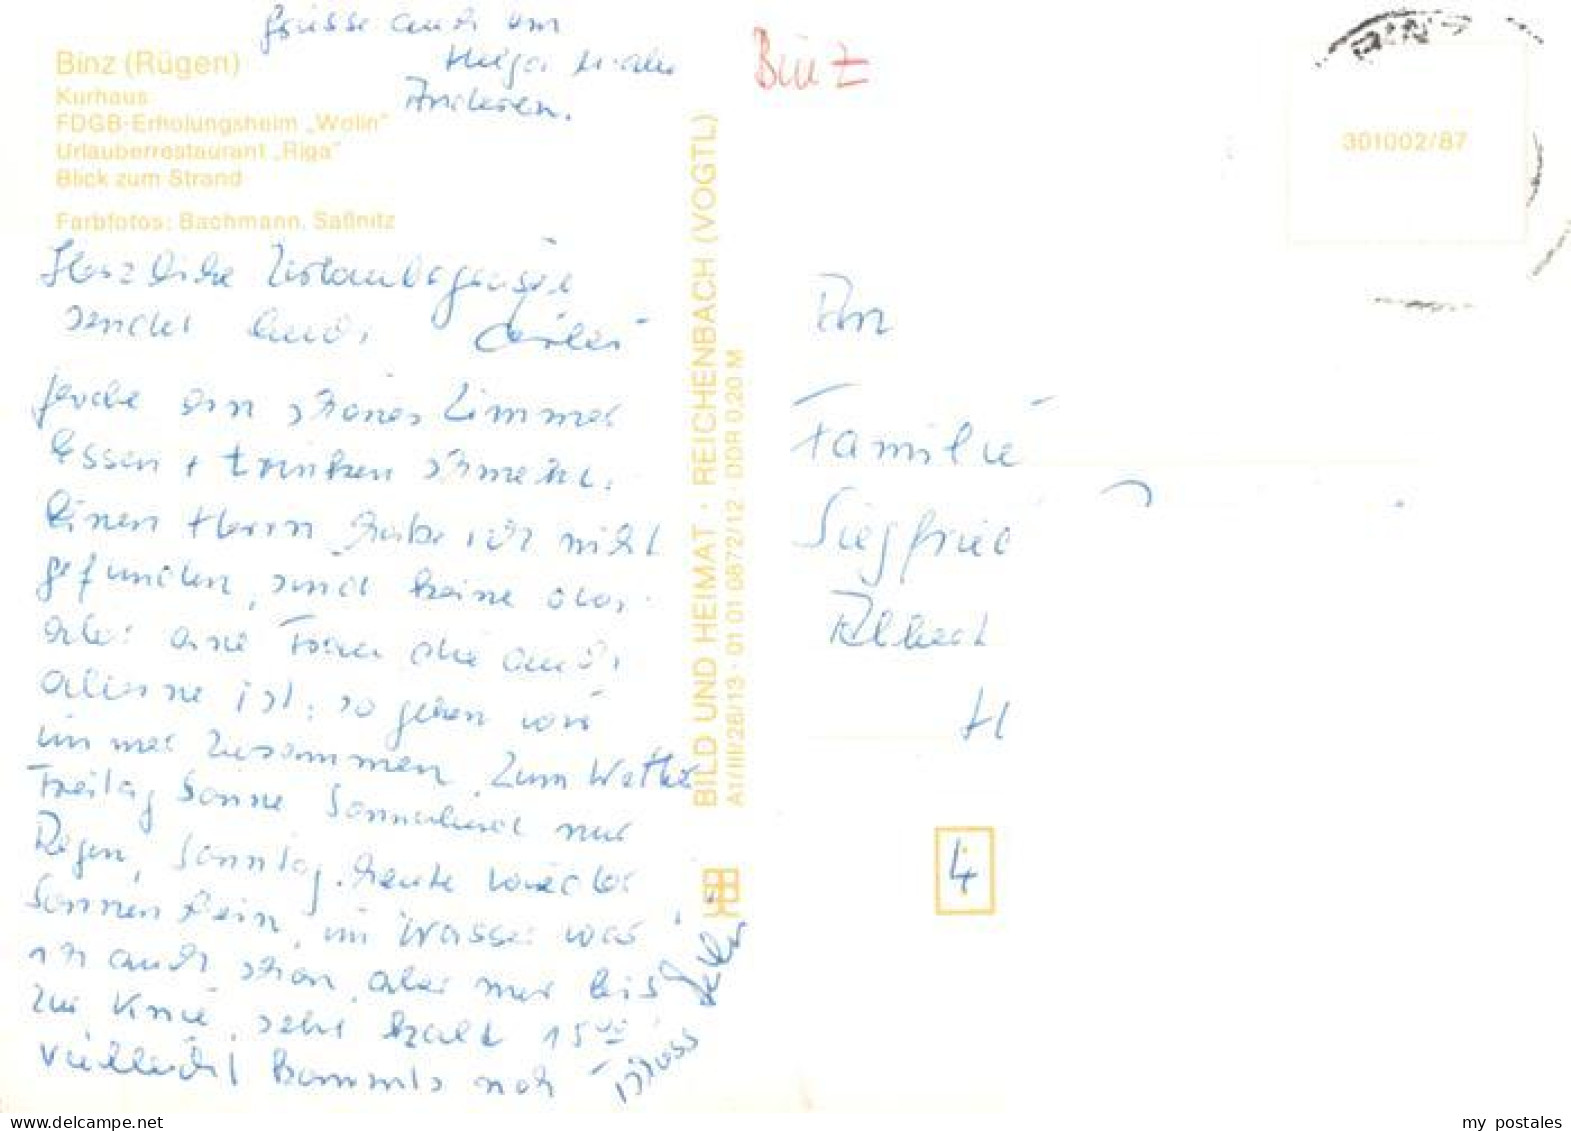 Grüsse auch von
Helga
Binz (Rügen)
Kurhaus
FDGB-Erholungsheim „Wolin"
Urlauberrestaurant „Riga"
Blick zum Strand
Farbfotos: Bachmann, Saßnitz
Herzliche Urlaubsgrüße
sendet Euch
ein schönes Zimmer
Essen + trinken schmeckt.
Einen Herrn habe ich nicht
gefunden, sind keine da,
aber eine Frau die auch
alleine ist, so gehen wir
immer zusammen. Zum Wetter
Freitag Sonne Sonnabend nur
Regen, Sonntag, heute wieder
Sonnenschein, im Wasser war
ich auch schon, aber nur bis
zum Knie, sehr kalt 15°°
vielleicht kommts noch
Tschüss
BILD UND HEIMAT · REICHENBACH (VOGTL)
A1/III/26/13 · 01 01 0872/12 · DDR 0,20 M
Binz
BINZ
301002/87
An
Familie
Siegfried
4
my postales